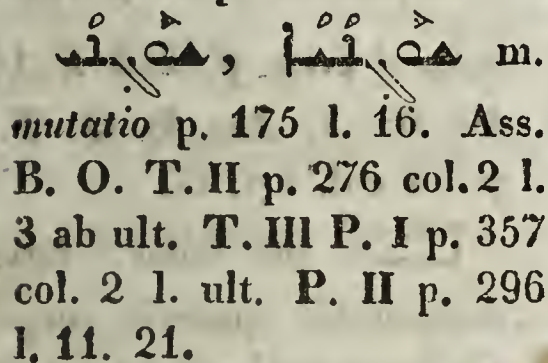 m.
mutatio p. 175 l. 16. Ass.
B. O. T. II p. 276 col. 2 l.
3 ab ult. T. III P. I p. 357
col. 2 l. ult. P. II p. 296
l. 11. 21.